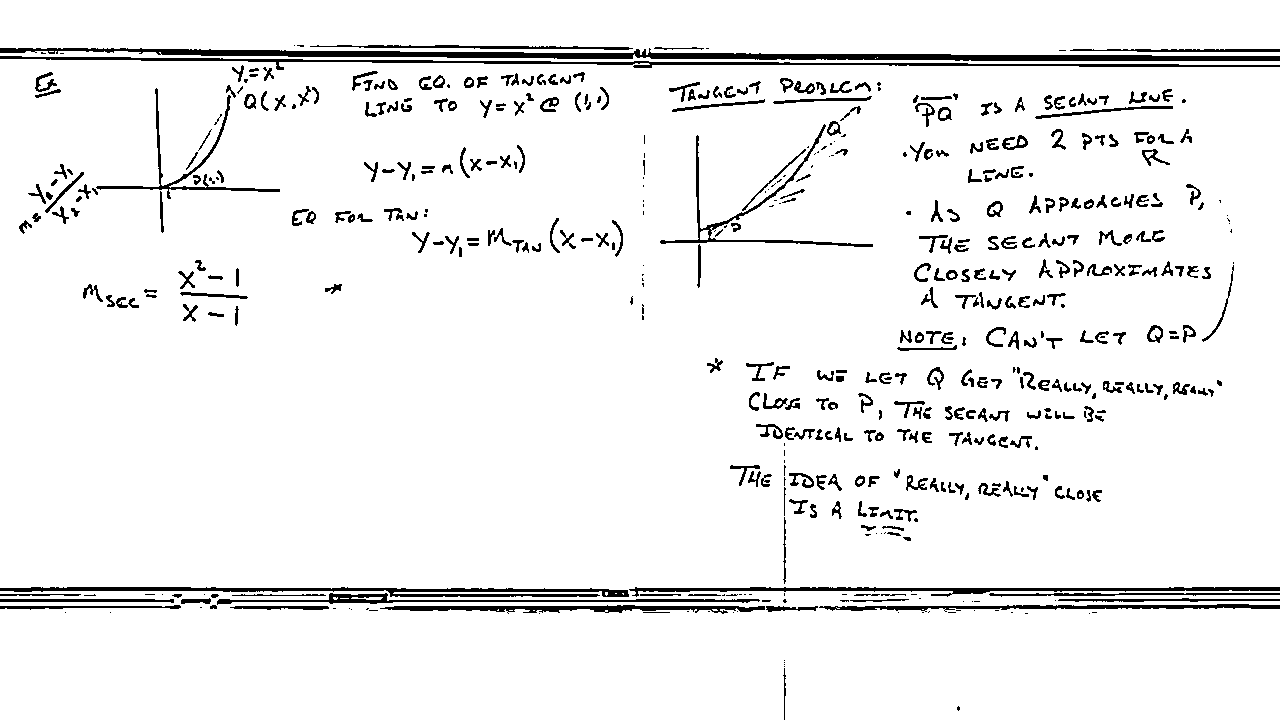 Ex
Y=X²
Q(X,X²)
P(1,1)
1
m = Y₂-Y₁ / X₂-X₁
FIND EQ. OF TANGENT
LINE TO Y=X² @ (1,1)
Y-Y₁=m(X-X₁)
EQ FOR TAN:
Y-Y₁=M_TAN(X-X₁)
M_SEC = X²-1 / X-1
*
TANGENT PROBLEM:
Q
P
"PQ" IS A SECANT LINE.
·YOU NEED 2 PTS FOR A
LINE.
· AS Q APPROACHES P,
THE SECANT MORE
CLOSELY APPROXIMATES
A TANGENT.
NOTE: CAN'T LET Q=P
* IF WE LET Q GET "REALLY, REALLY, REALLY"
CLOSE TO P, THE SECANT WILL BE
IDENTICAL TO THE TANGENT.
THE IDEA OF "REALLY, REALLY" CLOSE
IS A LIMIT.